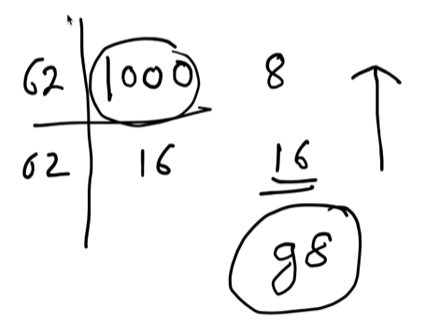 62 1000 8
62 16 16
g8